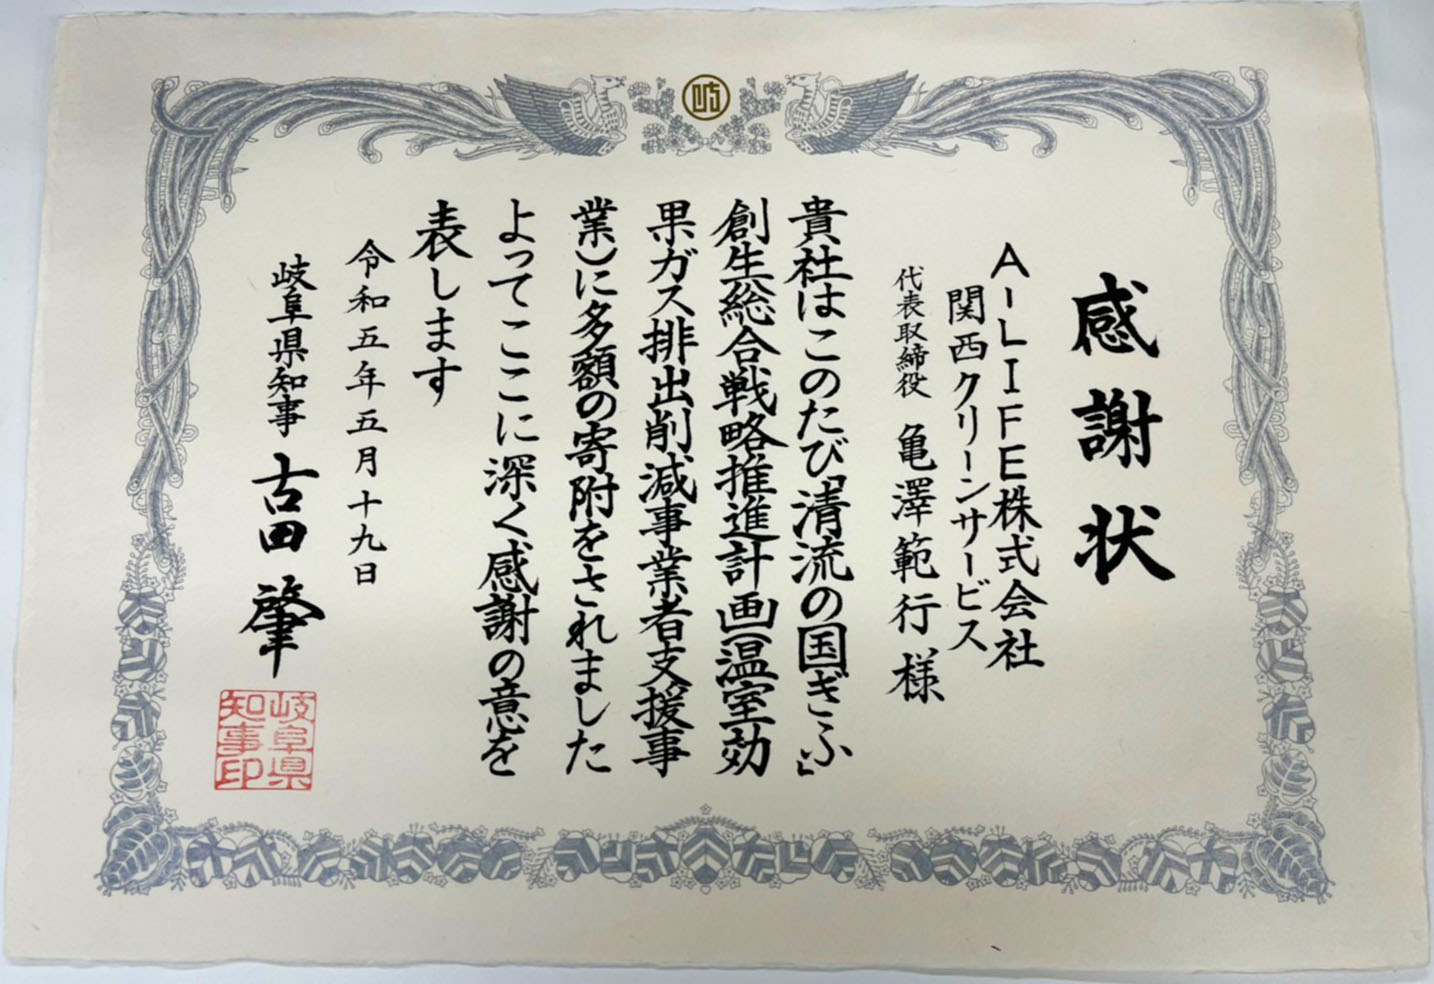 岐
感謝状
A-LIFE株式会社
関西クリーンサービス
代表取締役 亀澤範行様
貴社はこのたび「清流の国ぎふ」
創生総合戦略推進計画(温室効
果ガス排出削減事業者支援事
業)に多額の寄附をされました
よってここに深く感謝の意を
表します
令和五年五月十九日
岐阜県知事 古田 肇
岐阜県
知事印